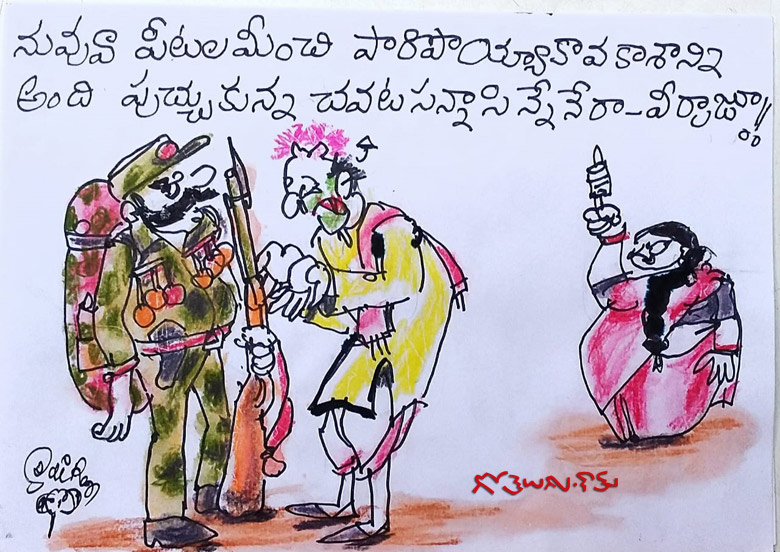 నువ్వా పీటలమీంచి పారిపొయ్యావకాశాన్ని
అంది పుచ్చుకున్న చవటసన్నాసిన్నేనేరా-వీర్రాజూ!!
గోతెలుగు.కామ్